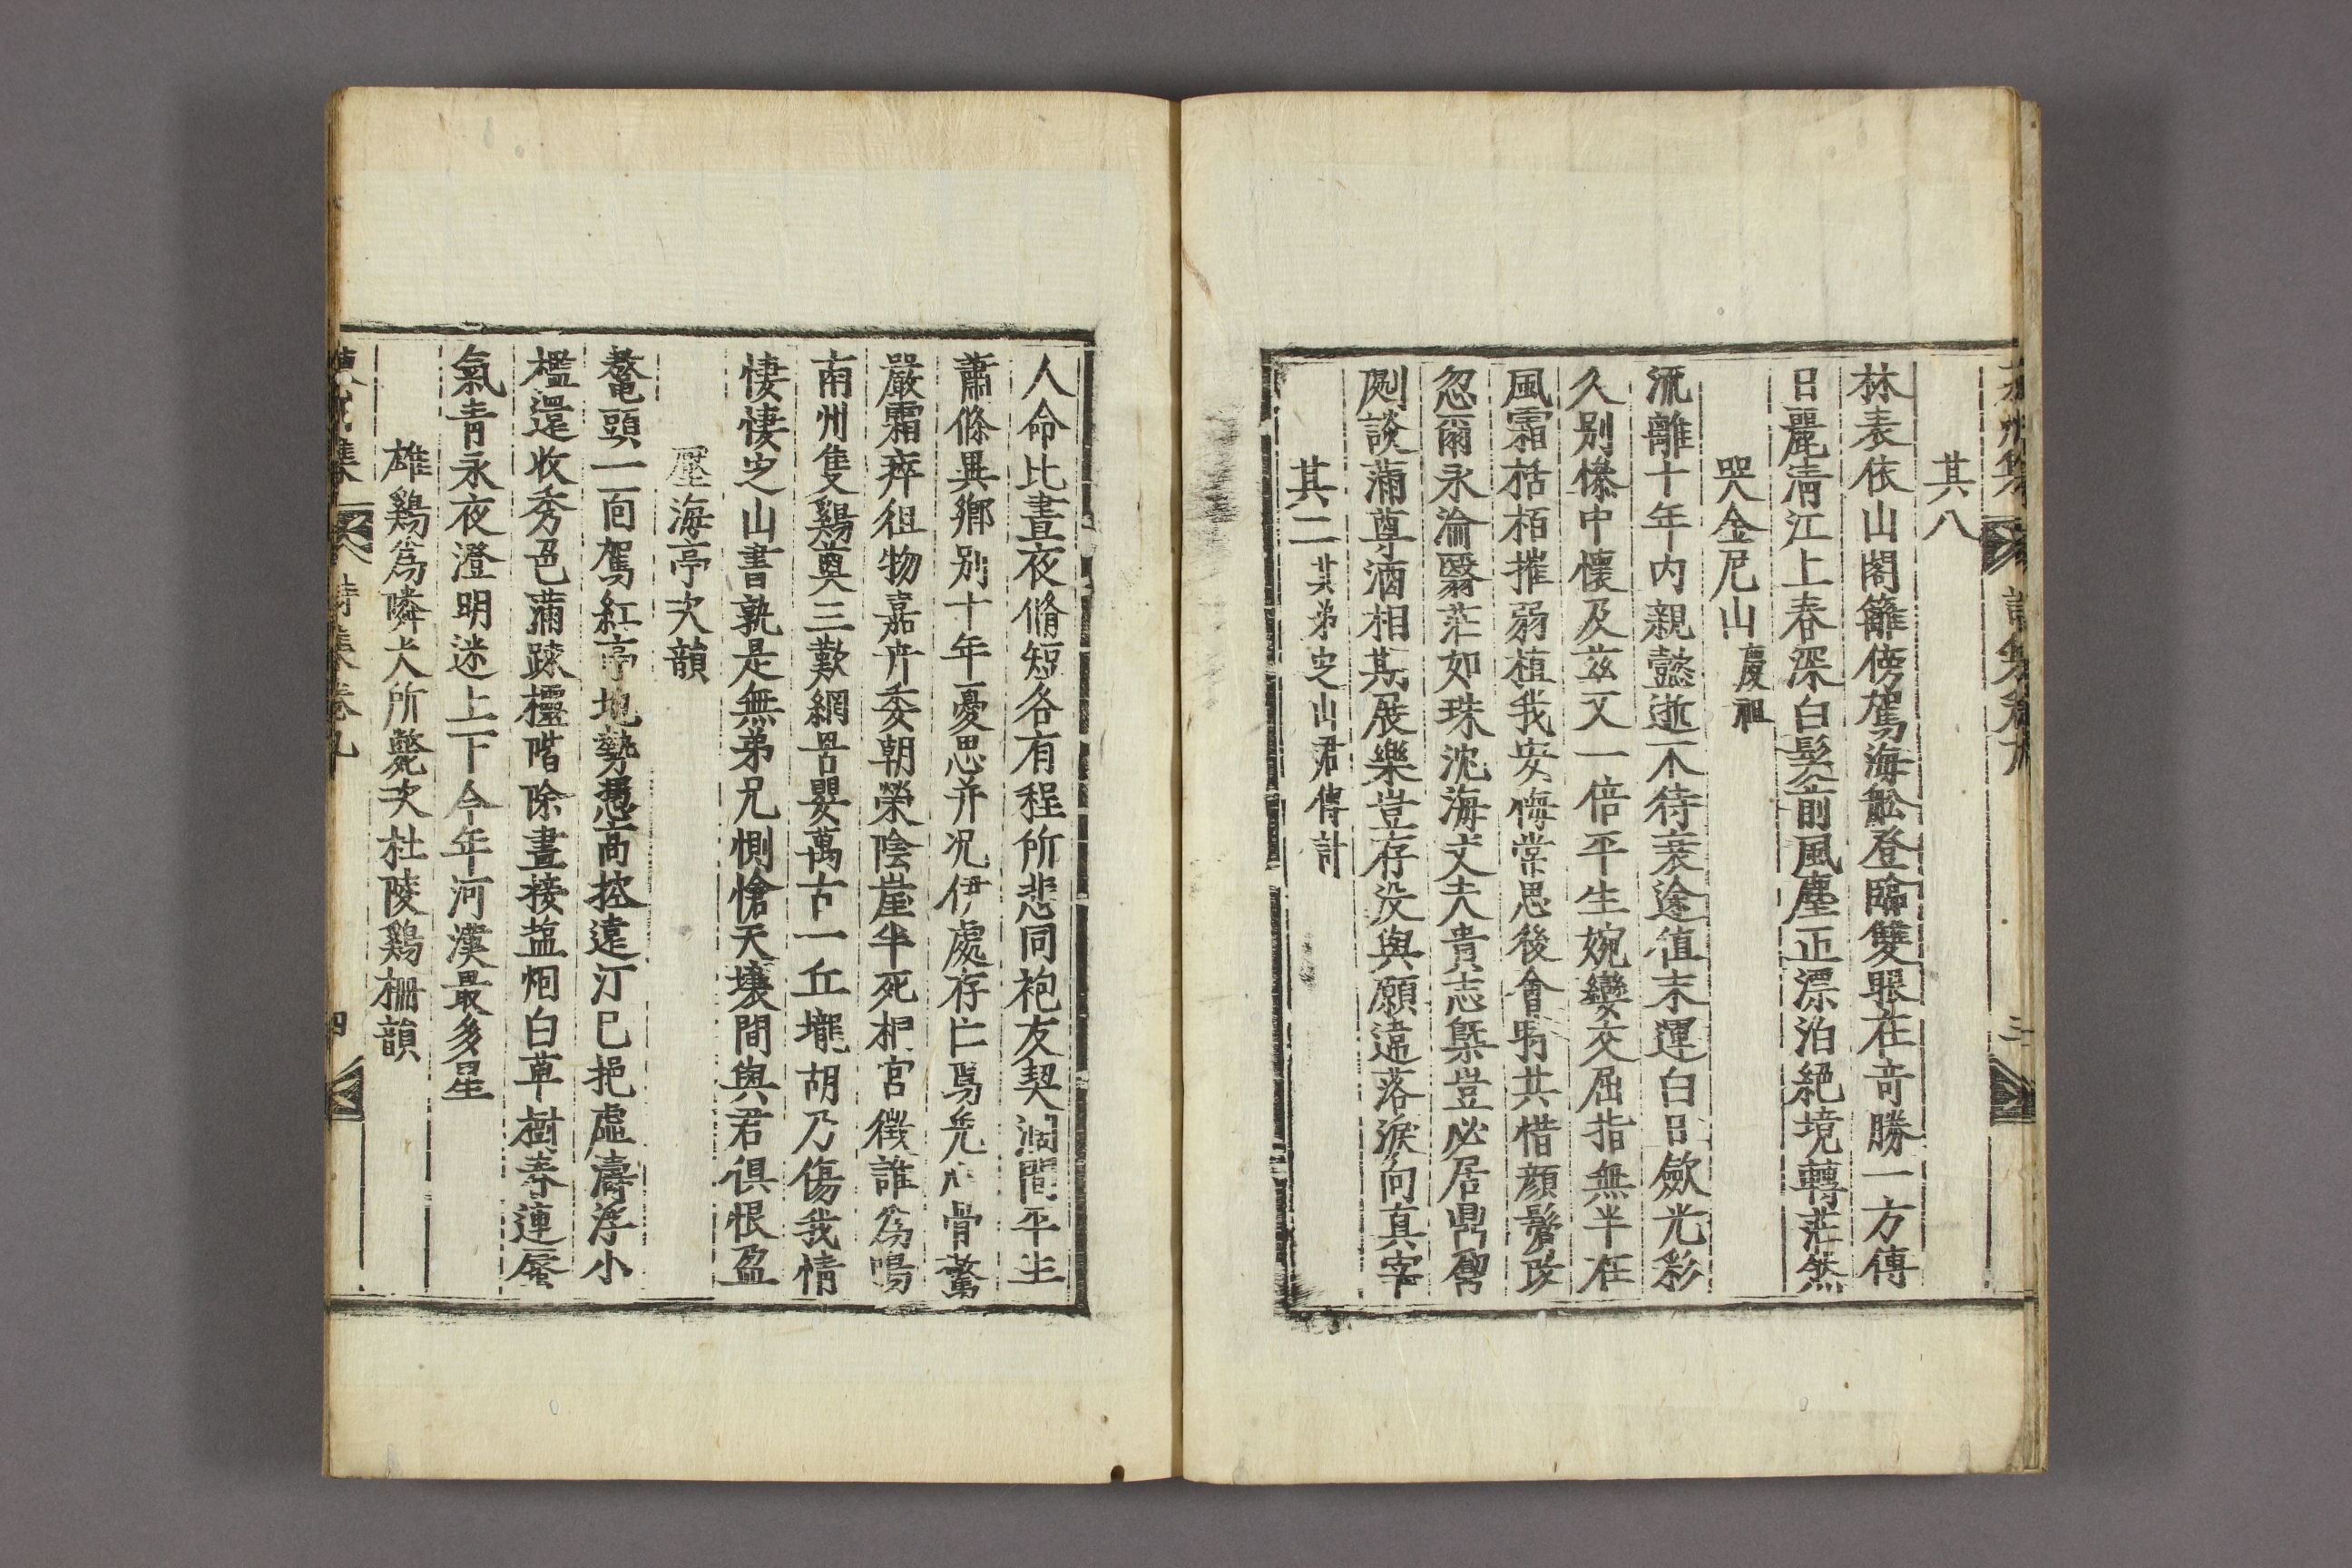 其八
林表依山閣籬傍駕海舩登臨雙眼在竒勝一方傳
日麗清江上春深白髮前風塵正漂泊絕境轉茫然
哭金尼山慶祖
流離十年內親懿逝不待衰途値末運白日歛光彩
久別慘中懷及玆又一倍平生婉孌交屈指無半在
風霜栝栢摧弱植我安悔常思後會期共惜顏鬢改
忽爾永淪翳茫如珠沈海丈夫貴志槩豈必居鼎鼐
劇談滿尊酒相期展樂豈存沒與願違落淚向眞宰
其二其弟定山君傳訃
人命比晝夜脩短各有程所悲同袍友契濶間平生
蕭條異鄕別十年憂思幷况伊處存亡焉免心骨驚
嚴霜瘁徂物嘉卉委朝榮陰崖半死桐宮徵誰爲鳴
南州隻鷄奠三歎網罟嬰萬古一丘壠胡乃傷我情
悽悽定山書孰是無弟兄惻愴天壤間與君俱恨盈
壓海亭次韻
鼇頭一面駕紅亭地勢憑高控遠汀已挹虛濤浮小
檻還收秀色滿踈欞階除晝接塩烟白草樹春連蜃
氣靑永夜澄明迷上下今年河漢最多星
雄鷄爲隣犬所斃次杜陵鷄柵韻
集 詩集卷九 四